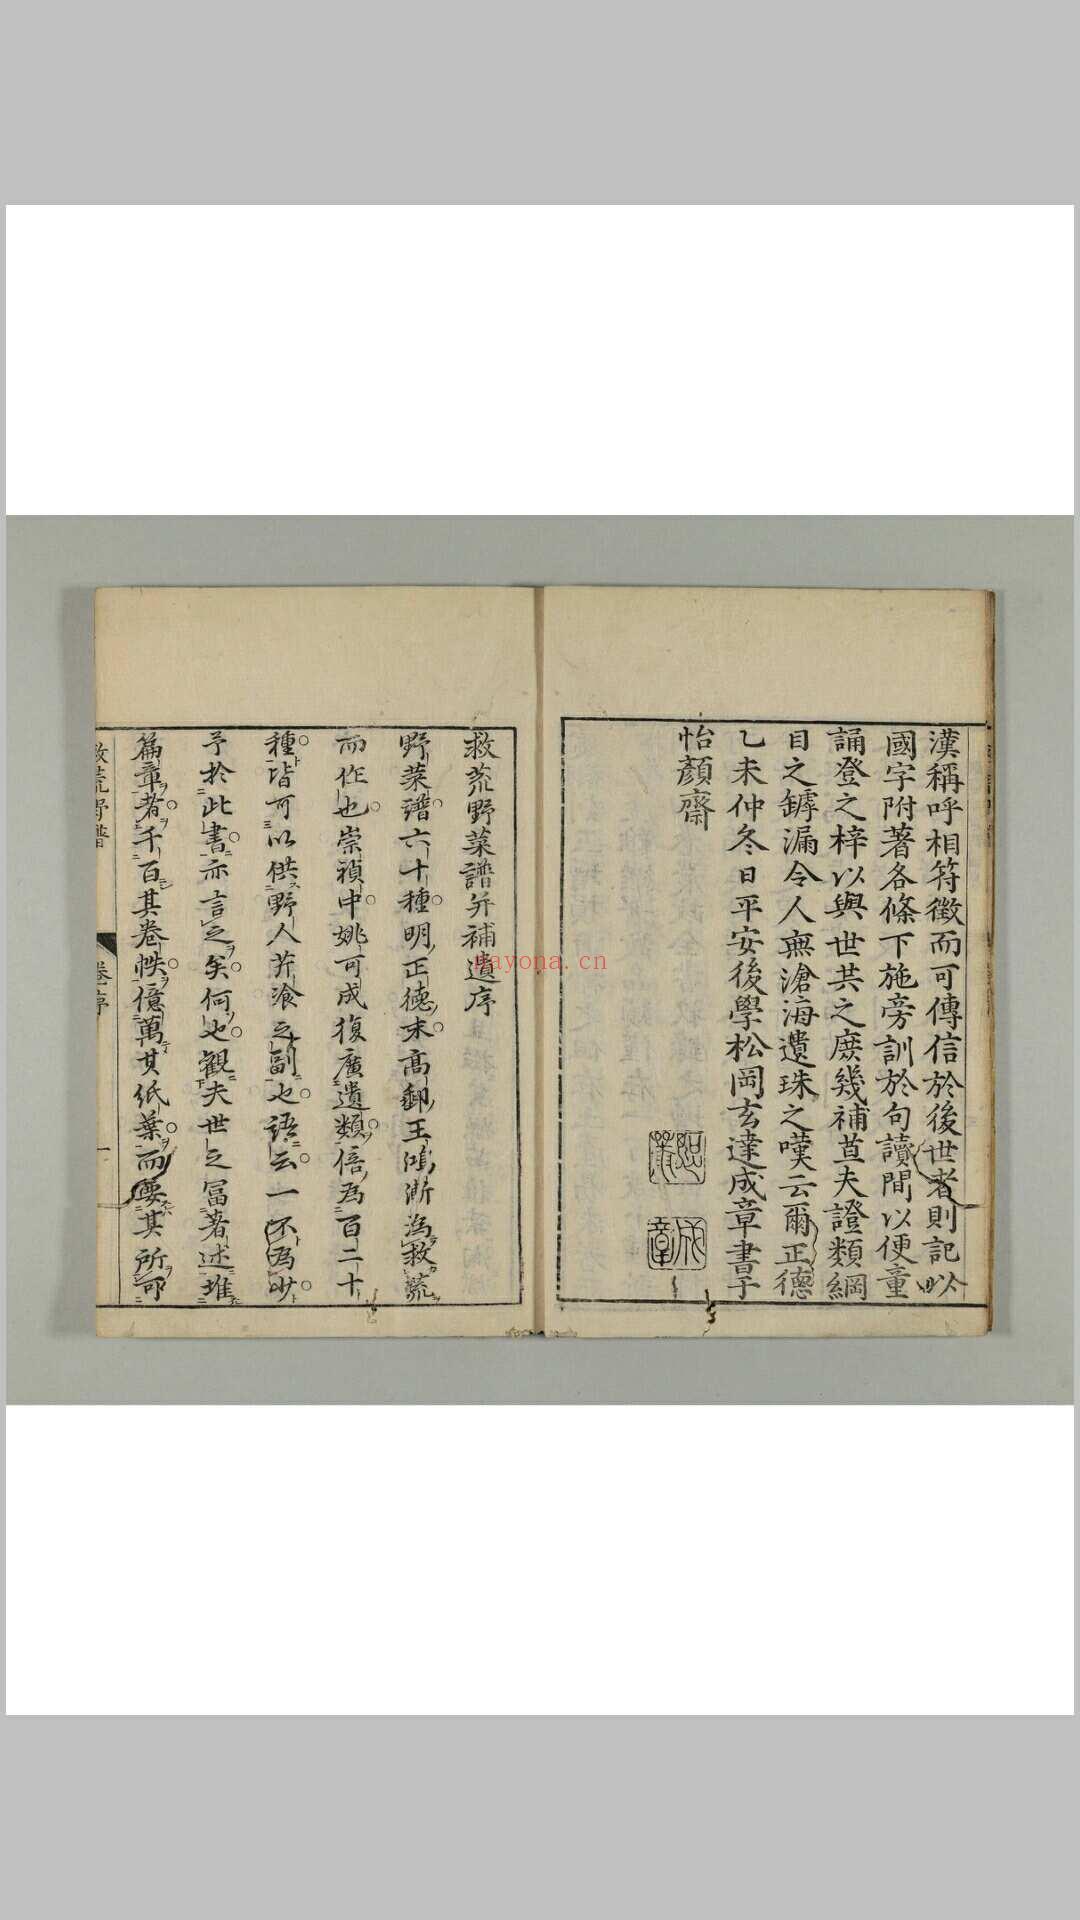 漢稱呼相符徵而可傳信於後世者則記以
國字附著各條下施旁訓於句讀間以便童
誦登之梓以與世共之庶幾補苴夫證類綱
目之罅漏令人無滄海遺珠之嘆云爾正德
乙未仲冬日平安後學松岡玄達成章書于
怡顏齋
救荒野菜譜并補遺序
野菜譜六十種明正德末高郵王鴻漸為救荒
而作也崇禎中姚可成復廣遺類倍為百二十
種皆可以供野人芹湌之副也語云一不為少
予於此書亦言之矣何也觀夫世之富著述堆
篇章者千百其卷帙億萬其紙葉而要其所可
救荒野譜
卷序
一
nayona.cn